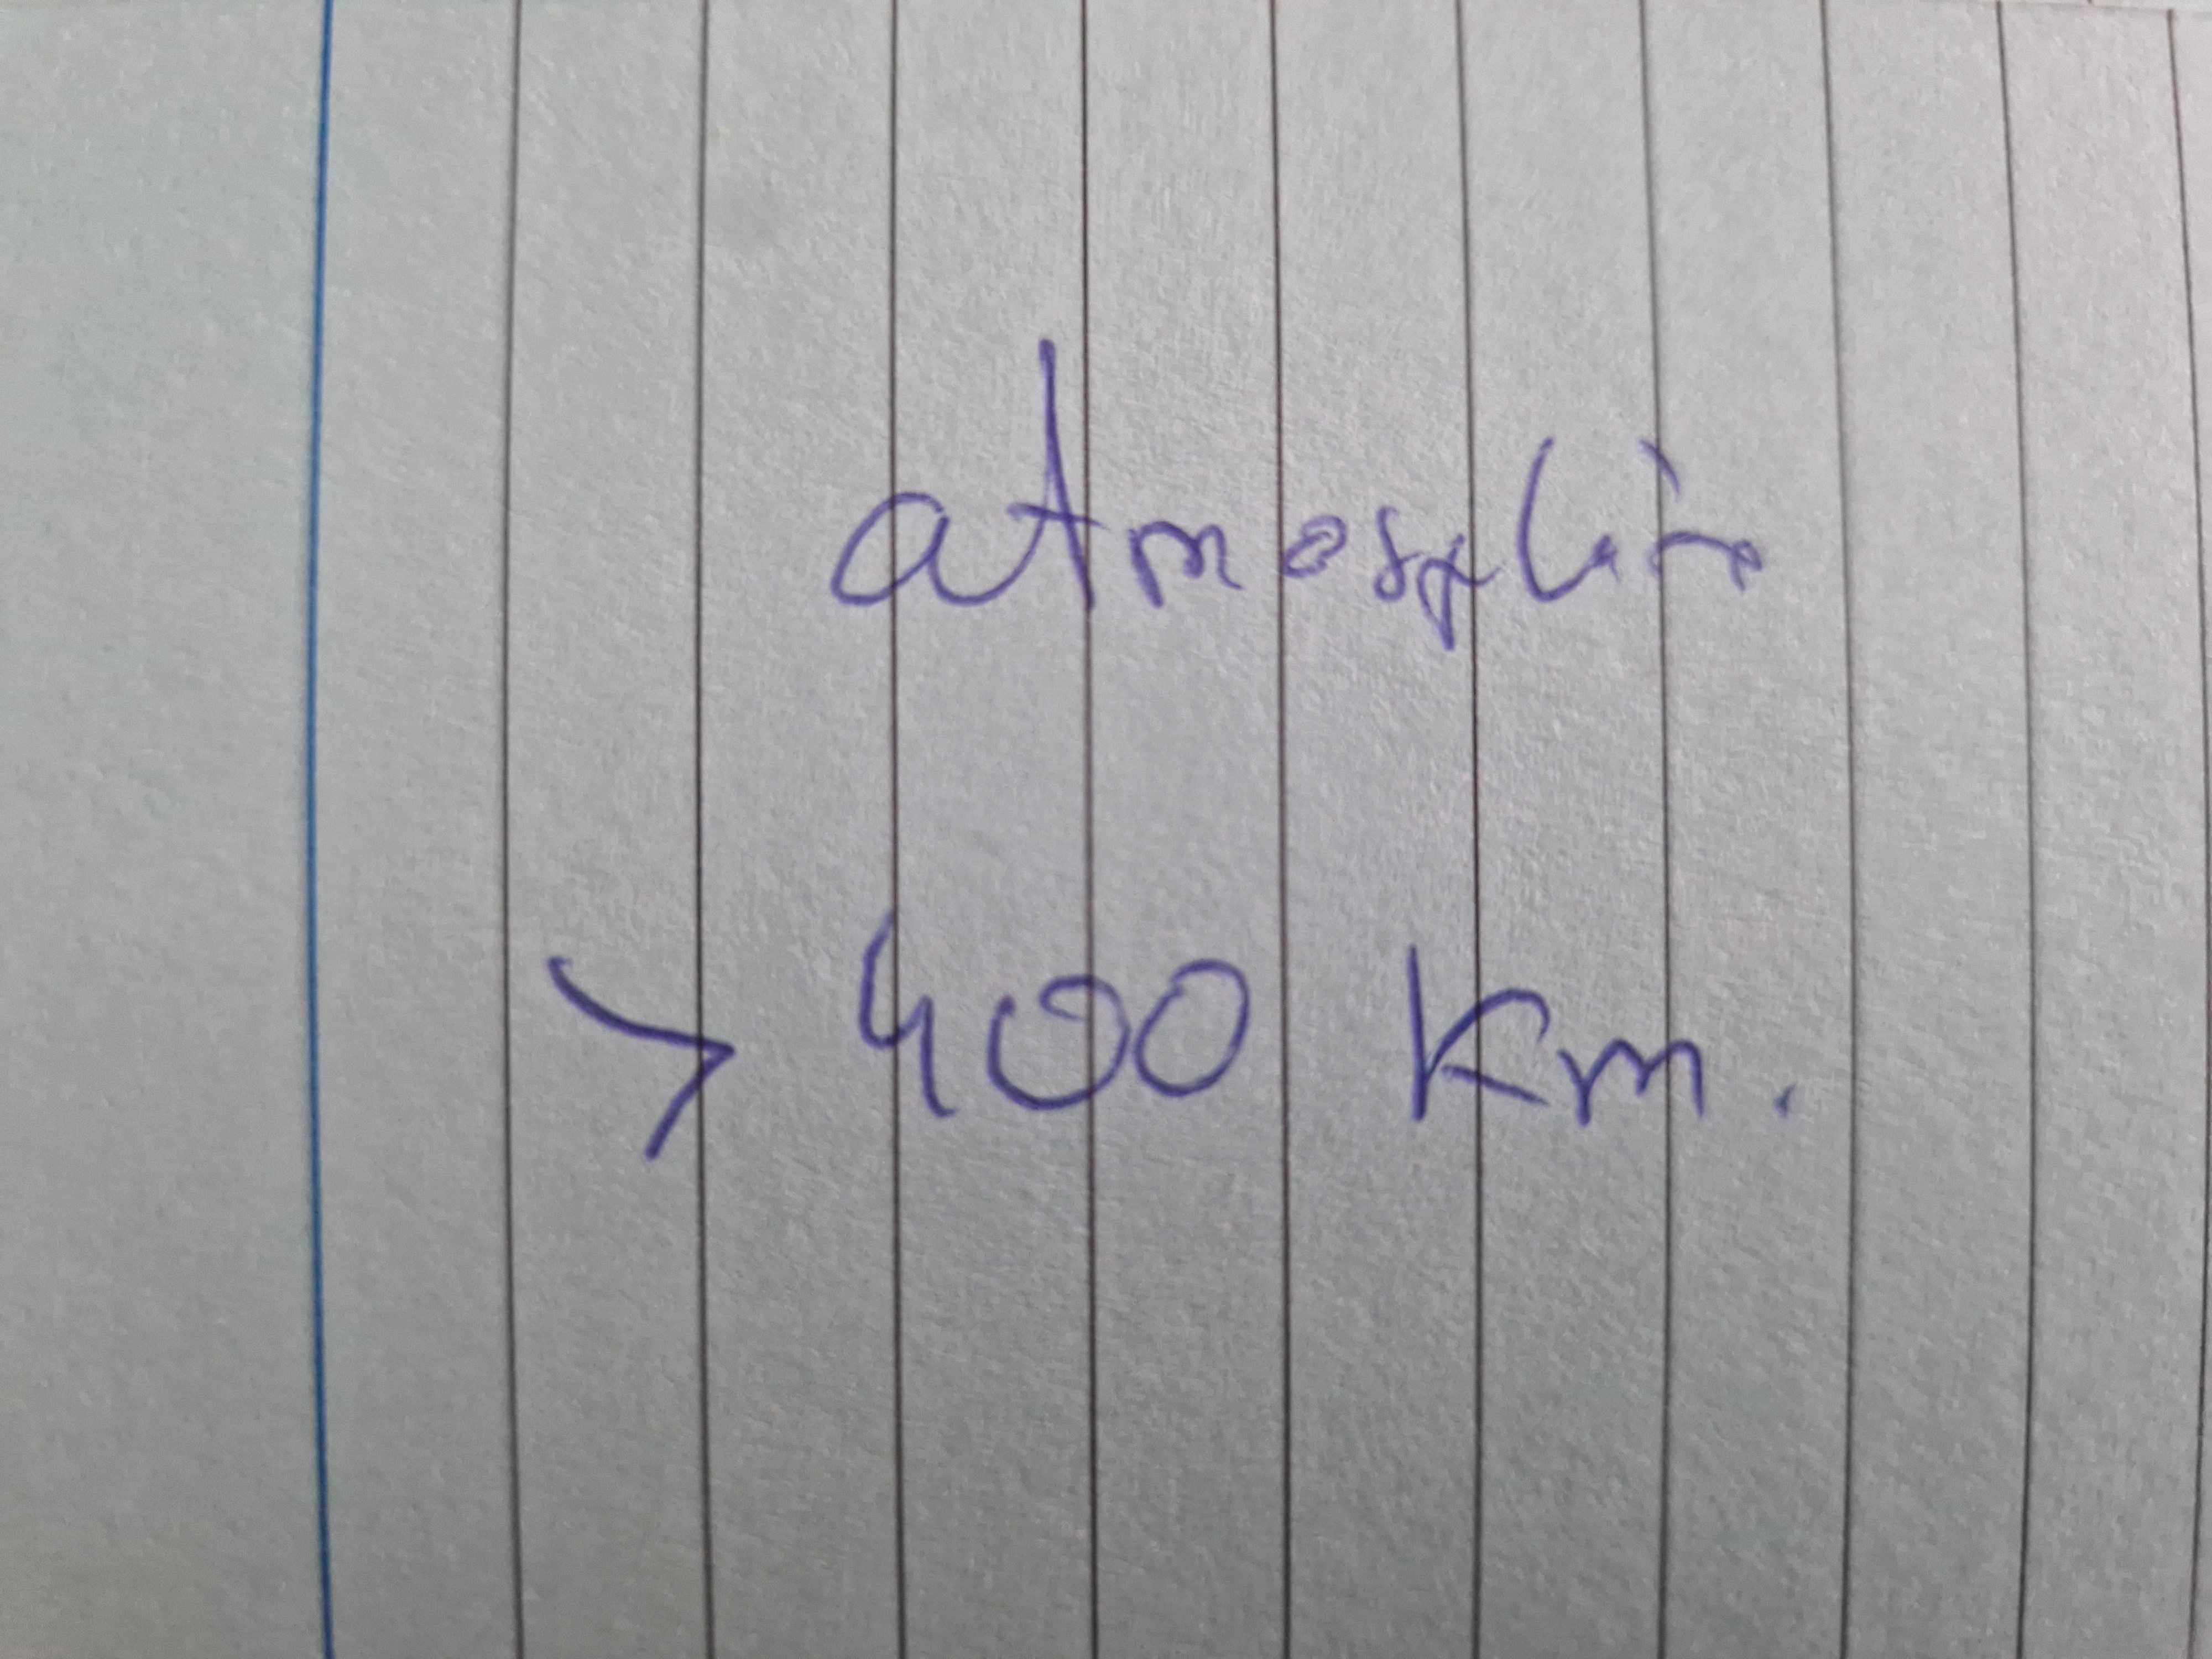 atmosphère
> 400 Km.